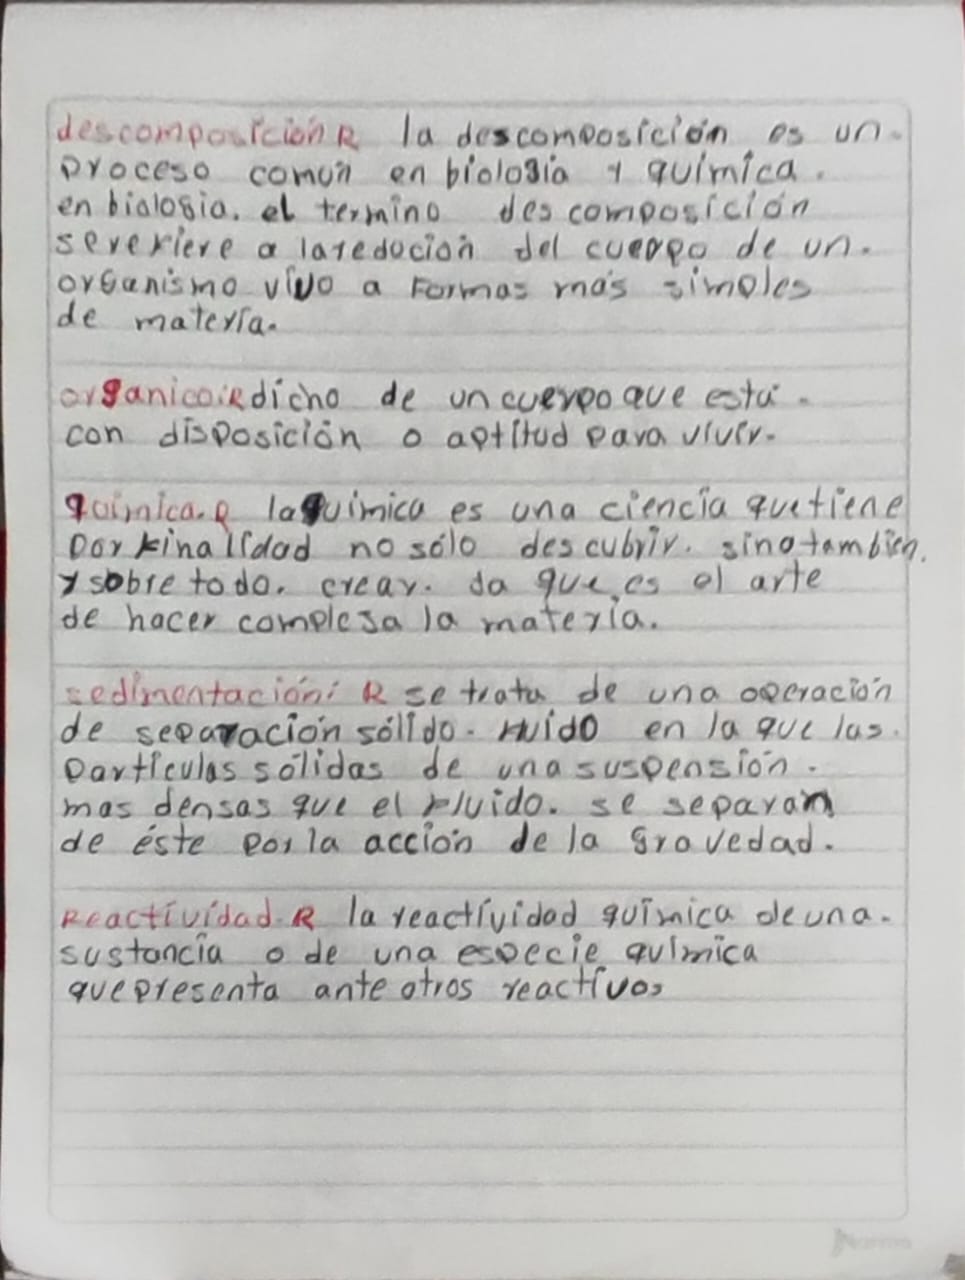 descomposición R la descomposición es un.
proceso común en biología y química.
en biologia. el termino descomposición
se refiere a la reducion del cuerpo de un.
organismo vivo a Formas más simples
de materia.
organico: R dicho de un cuerpo que está.
con disposición o aptitud para vivir.
química. R la química es una ciencia que tiene
por finalidad no sólo descubrir. sino tambien.
y sobre todo. crear. ya que es el arte
de hacer compleja la materia.
sedimentación: R se trata de una operación
de separación sólido. fluido en la que las.
Partículas sólidas de una suspensión.
mas densas que el fluido. se separan
de éste por la acción de la gravedad.
Reactividad. R la reactividad química de una.
sustancia o de una especie química
que presenta ante otros reactivos
Norma